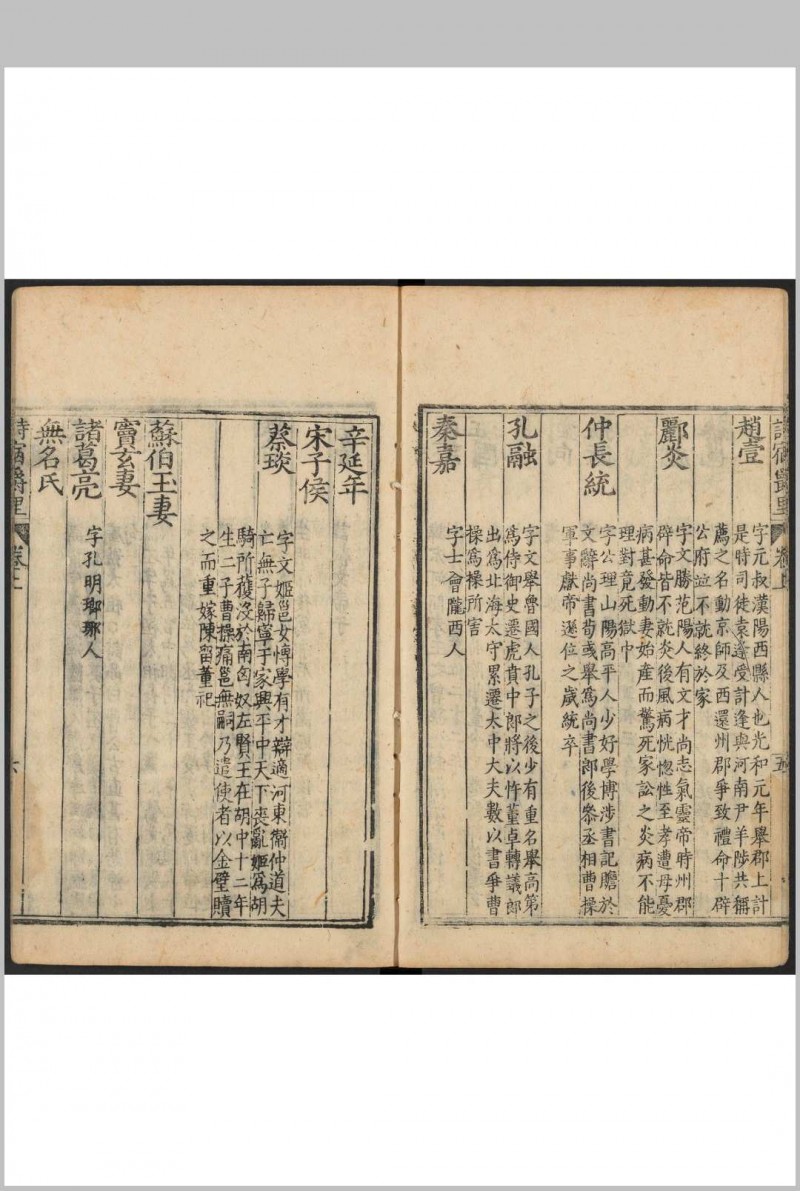 詩宿爵里
卷上
五
趙壹
字元叔漢陽西縣人也光和元年舉郡上計
是時司徒袁逢受計逢與河南尹羊陟共稱
薦之名動京師及西還州郡爭致禮命十辟
公府並不就終於家
酈炎
字文勝范陽人有文才尚志氣靈帝時州郡
辟命皆不就炎後風病恍惚性至孝遭母憂
病甚發動妻始產而驚死家訟之炎病不能
理對竟死獄中
仲長統
字公理山陽高平人少好學博涉書記贍於
文辭尚書荀彧舉爲尚書郎後叅丞相曹操
軍事獻帝遜位之歲統卒
孔融
字文舉魯國人孔子之後少有重名舉高第
爲侍御史遷虎賁中郎將以忤董卓轉議郎
出爲北海太守累遷太中大夫數以書爭曹
操爲操所害
秦嘉
字士會隴西人
辛延年
宋子侯
蔡琰
字文姬邕女博學有才辯適河東衛仲道夫
亡無子歸寧于家興平中天下喪亂姬爲胡
騎所獲沒於南匈奴左賢王在胡中十二年
生二子曹操痛邕無嗣乃遣使者以金璧贖
之而重嫁陳留董祀
蘇伯玉妻
竇玄妻
諸葛亮
字孔明瑯琊人
無名氏
詩宿爵里
卷上
六